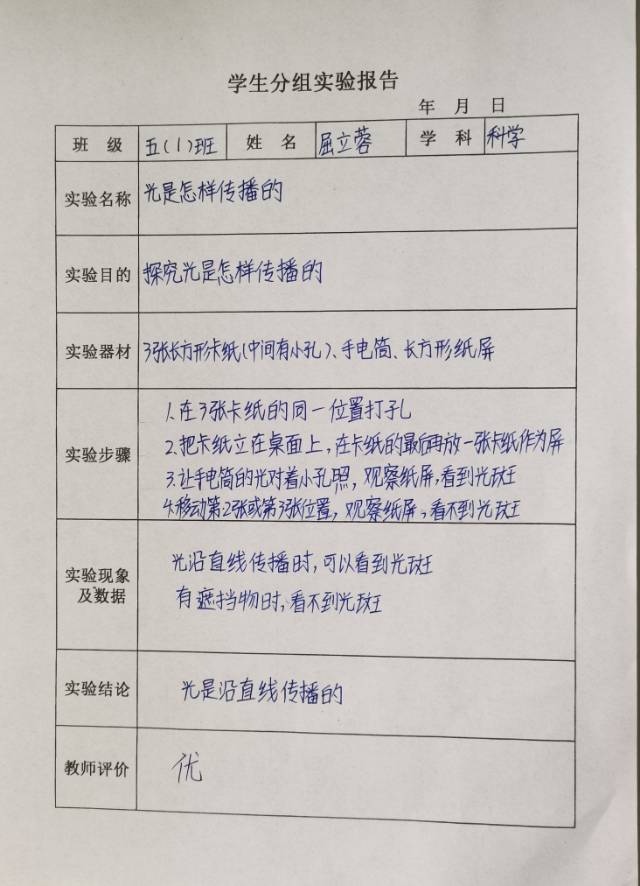 学生分组实验报告
年 月 日
班 级 五(1)班 姓 名 屈立蓉 学 科 科学
实验名称 光是怎样传播的
实验目的 探究光是怎样传播的
实验器材 3张长方形卡纸(中间有小孔)、手电筒、长方形纸屏
实验步骤
1.在3张卡纸的同一位置打孔
2.把卡纸立在桌面上,在卡纸的最后再放一张卡纸作为屏
3.让手电筒的光对着小孔照,观察纸屏,看到光斑
4.移动第2张或第3张位置,观察纸屏,看不到光斑
实验现象
及数据
光沿直线传播时,可以看到光斑
有遮挡物时,看不到光斑
实验结论 光是沿直线传播的
教师评价 优